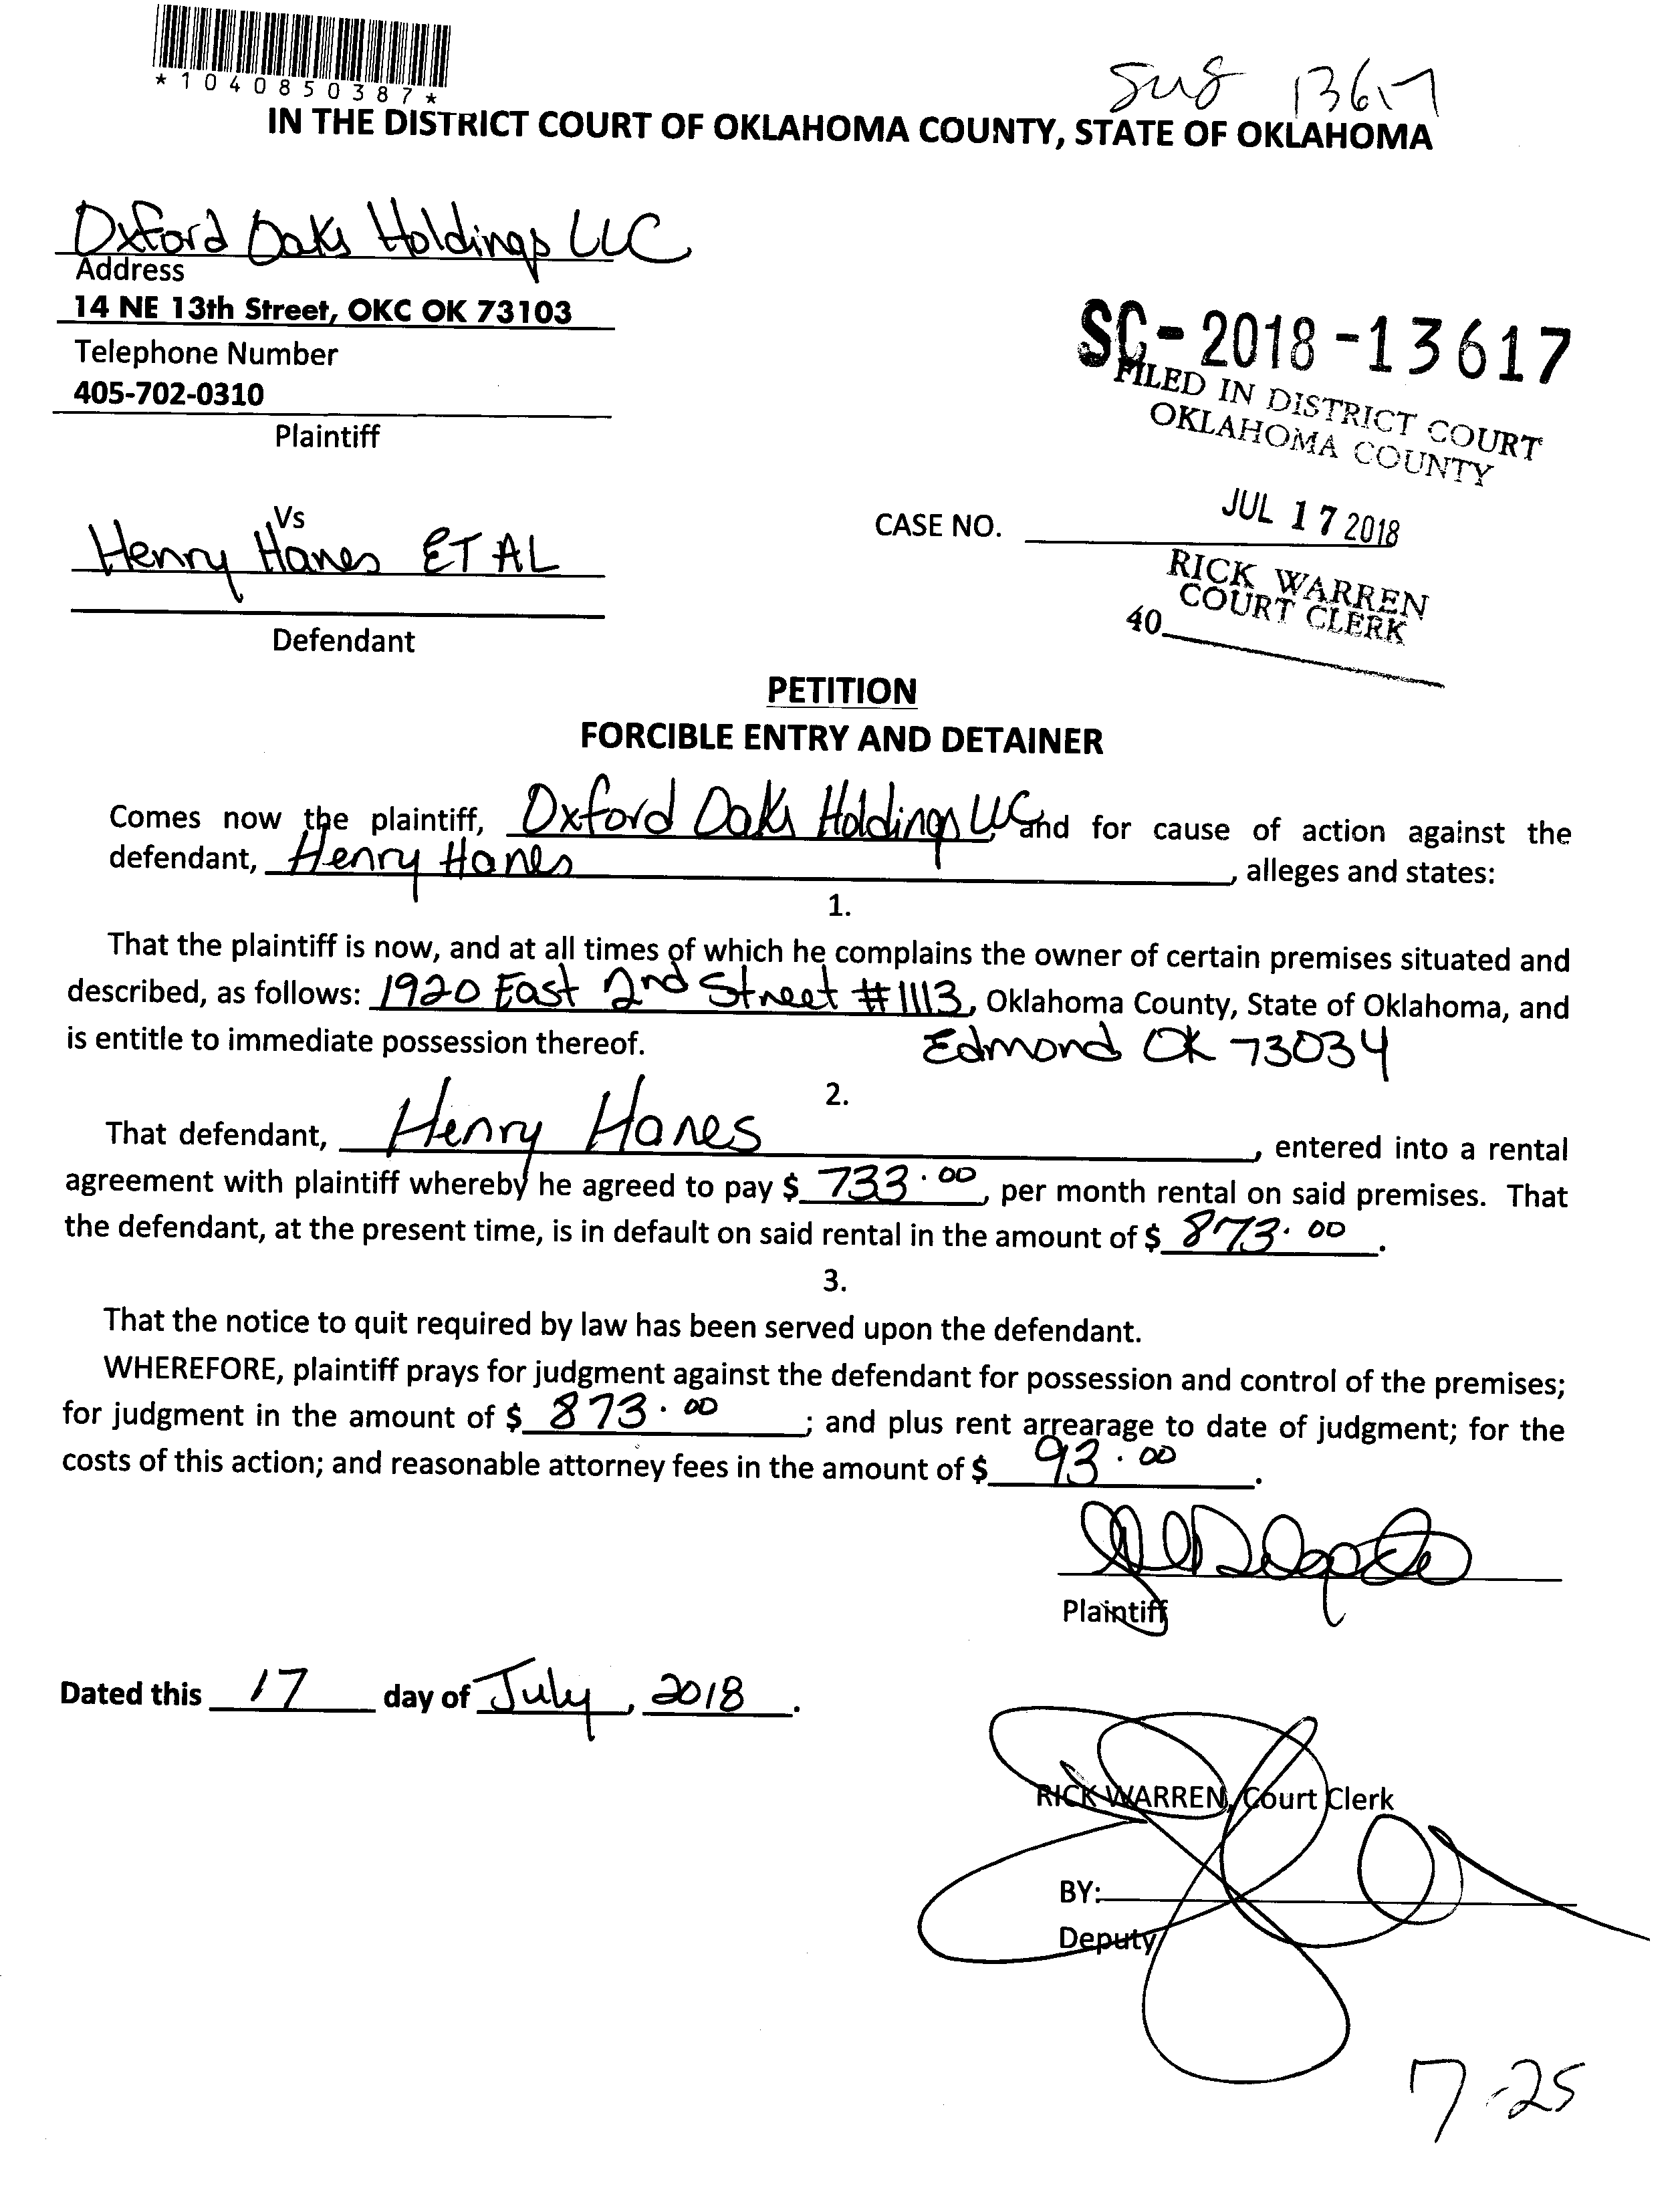 *1040850387*
13617
IN THE DISTRICT COURT OF OKLAHOMA COUNTY, STATE OF OKLAHOMA
Oxford Oaks Holdings LLC
Address
14 NE 13th Street, OKC OK 73103
Telephone Number
405-702-0310
Plaintiff
SC-2018-13617
FILED IN DISTRICT COURT
OKLAHOMA COUNTY
Vs
Henry Hanes ET AL
Defendant
CASE NO.
JUL 17 2018
RICK WARREN
COURT CLERK
40
PETITION
FORCIBLE ENTRY AND DETAINER
Comes now the plaintiff, Oxford Oaks Holdings LLC, and for cause of action against the
defendant, Henry Hanes, alleges and states:
1.
That the plaintiff is now, and at all times of which he complains the owner of certain premises situated and
described, as follows: 1920 East 2nd Street #1113, Oklahoma County, State of Oklahoma, and
is entitle to immediate possession thereof. Edmond OK 73034
2.
That defendant, Henry Hanes, entered into a rental
agreement with plaintiff whereby he agreed to pay $ 733.00, per month rental on said premises. That
the defendant, at the present time, is in default on said rental in the amount of $ 873.00.
3.
That the notice to quit required by law has been served upon the defendant.
WHEREFORE, plaintiff prays for judgment against the defendant for possession and control of the premises;
for judgment in the amount of $ 873.00; and plus rent arrearage to date of judgment; for the
costs of this action; and reasonable attorney fees in the amount of $ 93.00.
Plaintiff
Dated this 17 day of July, 2018.
RICK WARREN, Court Clerk
BY:
Deputy
7-25